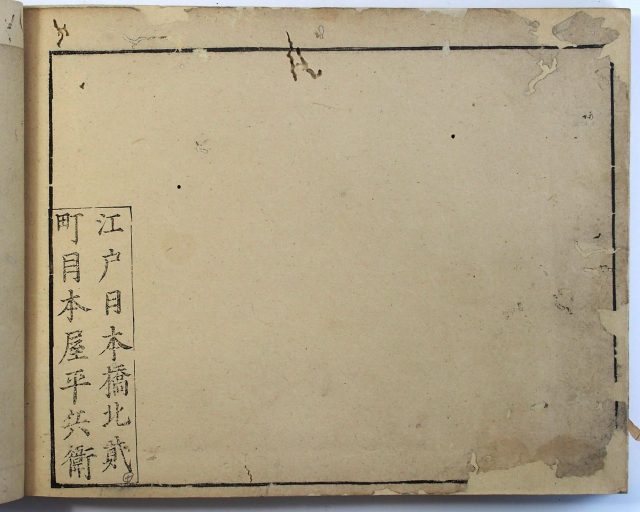 江戸日本橋北貮
町目本屋平兵衛